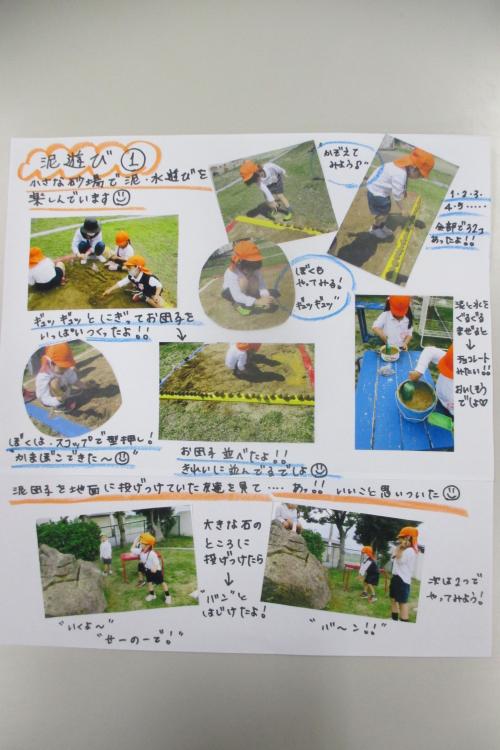 泥遊び①
小さな砂場で泥・水遊びを
楽しんでいます
"かぞえて
みよう♪"
1・2・3・
4・5‥‥‥
全部で32コ
あったよ!!
ぼくも
やってみる!
ギュッギュッ"
ギュッギュッとにぎってお団子を
いっぱいつくったよ!!
泥と水を
ぐるぐる
まぜると
→
チョコレート
みたい!!
おいしそう
でしょ♡
ぼくは、スコップで型押し!
かまぼこできた〜
お団子並べたよ!!
きれいに並んでるでしょ
泥団子を地面に投げつけていた友達を見て‥‥あっ!!いいこと思いついた
大きな石の
ところに
投げつけたら
↓
"バン"と
はじけたよ!
次は2つで
やってみよう!
"いくよ〜"
"せーのーで!"
"バ〜ン!!"